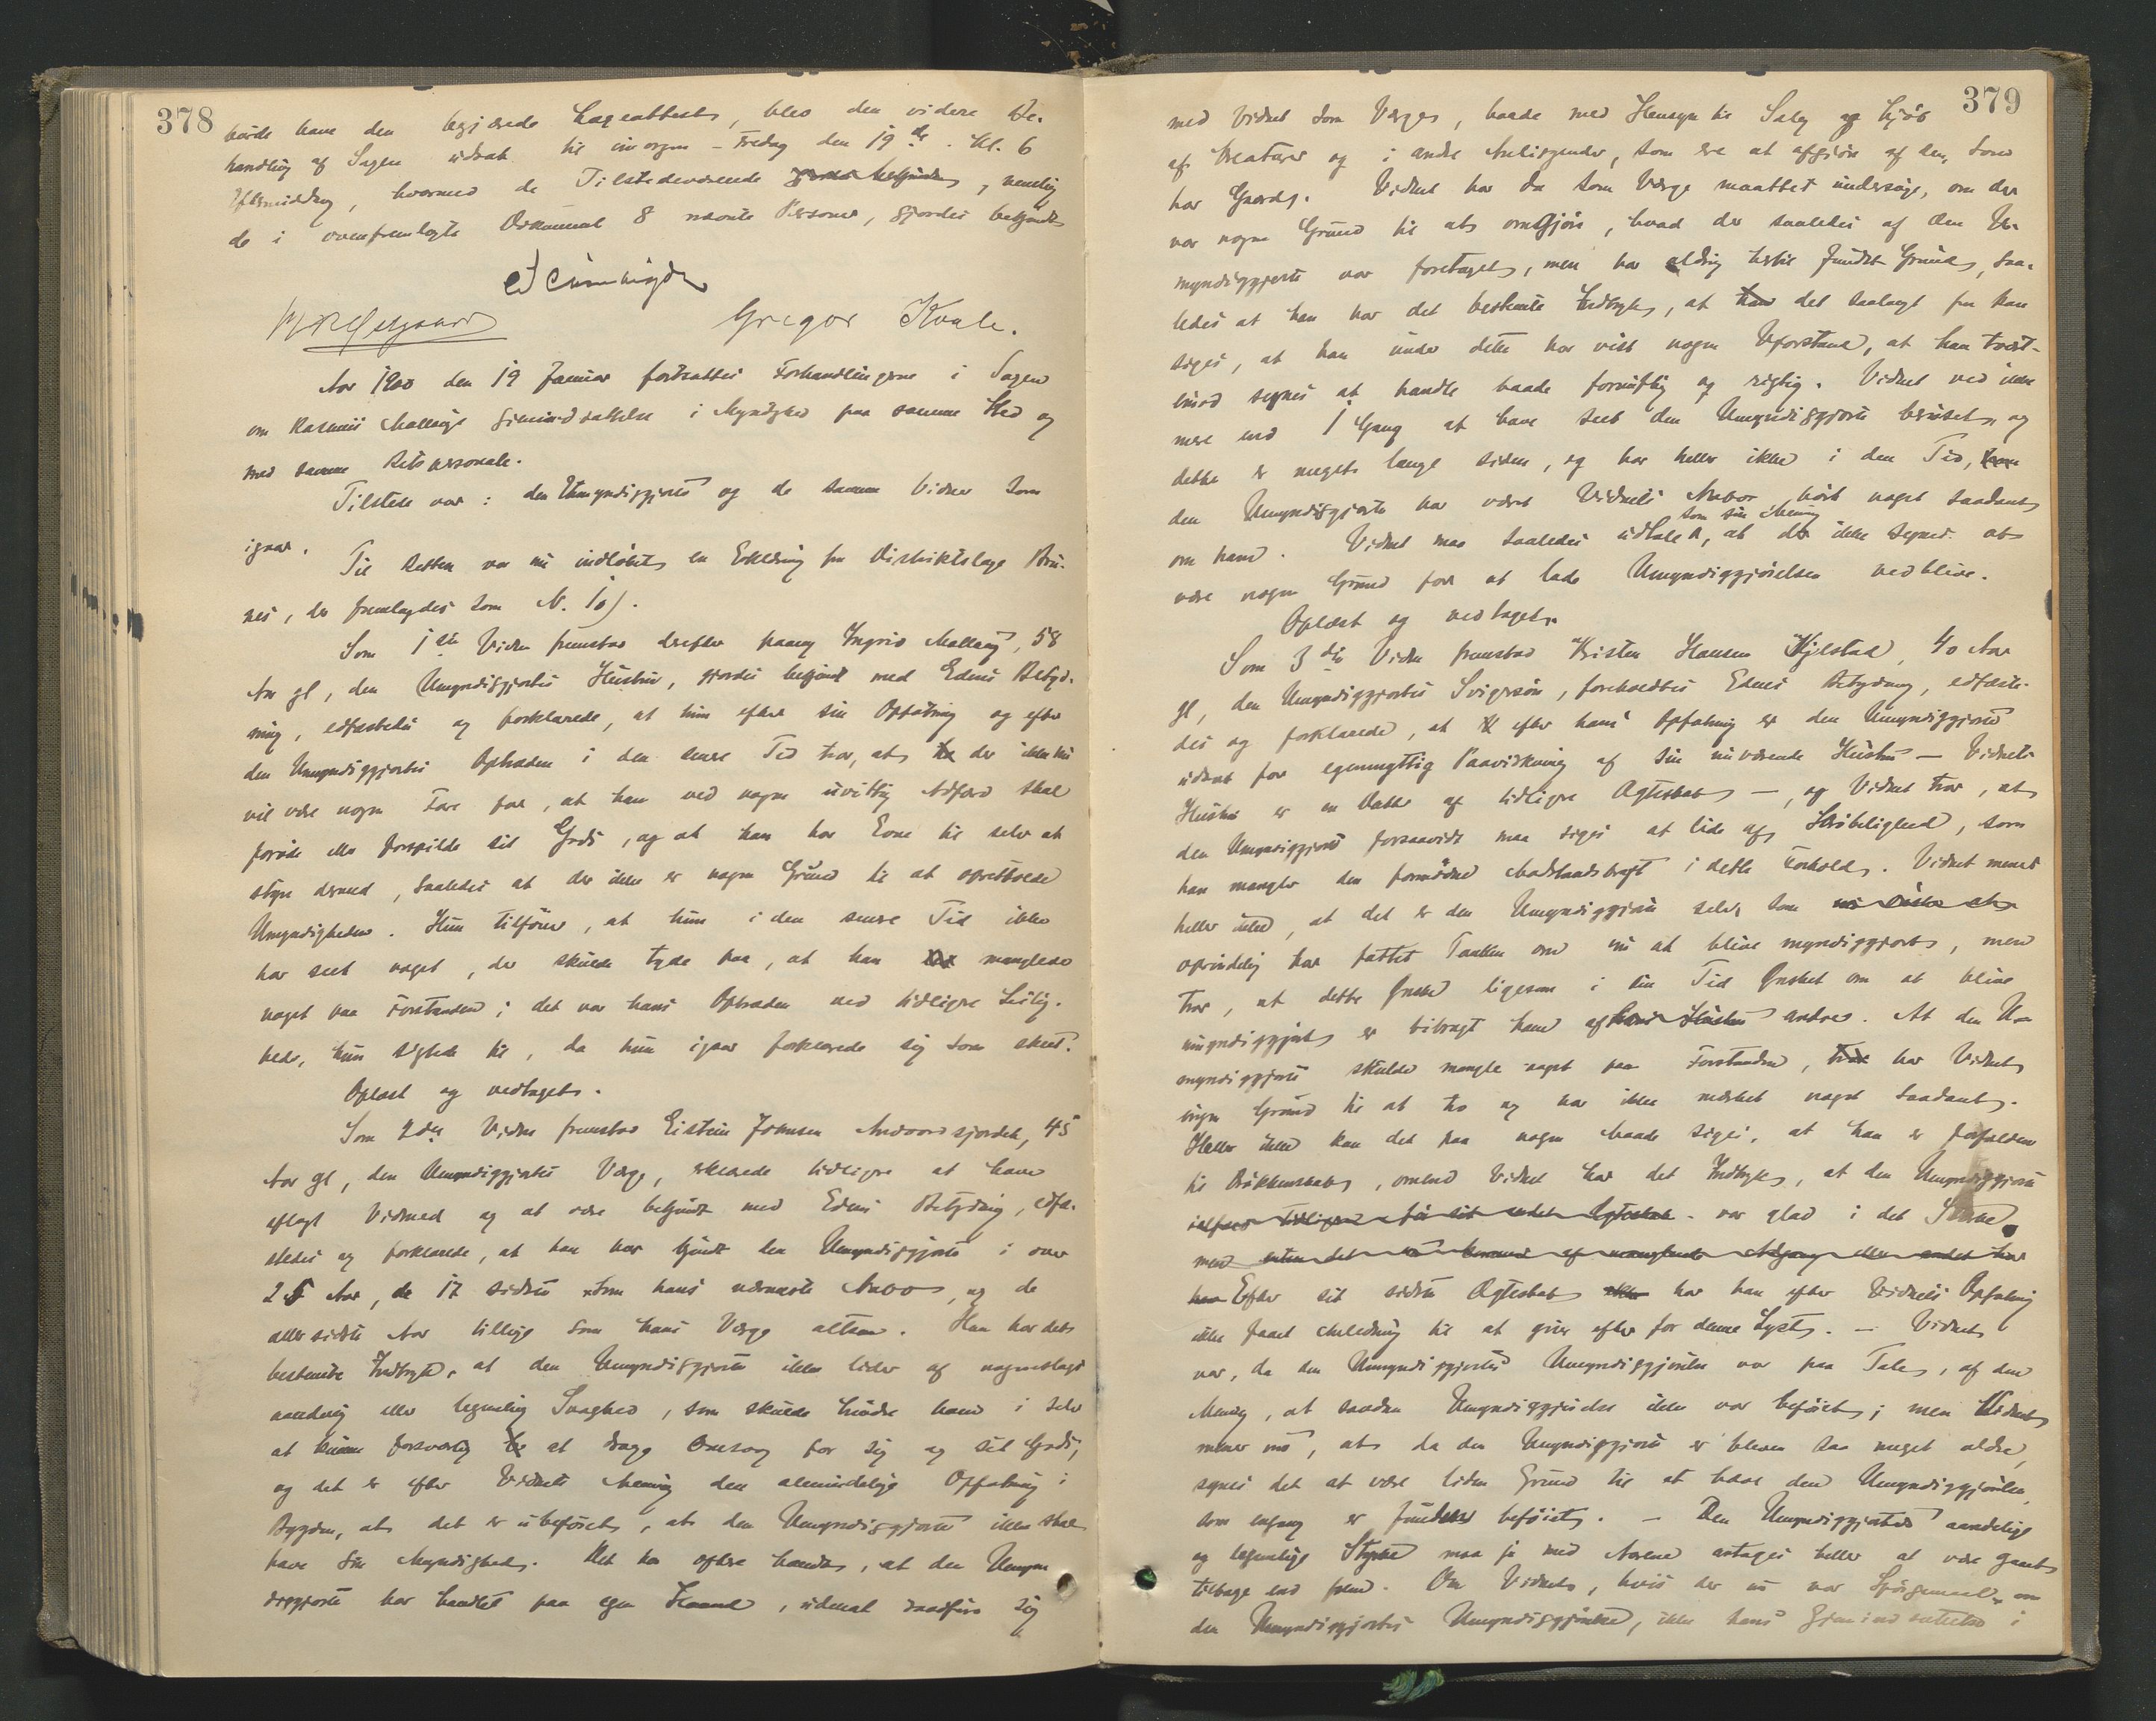 378
burde have den begjærede Lægeattest, blev den videre Be-
handling af Sagen udsat til imorgen - Fredag den 19de Kl. 6
Eftermiddag, hvormed de Tilstedeværende, nemlig
de i ovenfremlagte Dokument 8 nævnte Personer, gjordes bekjendt
Gregor Kvale.
Aar 1900 den 19 Januar fortsattes Forhandlingerne i Sagen
om Rasmus Mallangs Gjenindsættelse i Myndighed paa samme Sted og
med samme Retspersonale.
Tilstede var: den Umyndiggjorte og de samme Vidner som
igaar.
Til Retten var nu indløbet en Erklæring fra Distriktslæge Bru-
nes, der fremlagdes som N. 10).
Som 1ste Vidne fremstod derefter paany Ingrid Mallang, 58
Aar gl, den Umyndiggjortes Hustru, gjordes bekjendt med Edens Betyd-
ning, edfæstedes og forklarede, at hun efter sin Opfatning og efter
den Umyndiggjortes Optræden i den senere Tid tror, at der ikke nu
vil være nogen Fare for, at han ved nogen uvittig Adfærd skal
forøde eller forspilde sit Gods, og at han har Evne til selv at
styre dermed, saaledes at der ikke er nogen Grund til at opretholde
Umyndigheden. Hun tilføier, at hun i den senere Tid ikke
har seet noget, der skulde tyde paa, at han manglede
noget paa Forstanden; det var hans Optræden ved tidligere Leilig-
hed, hun sigtede til, da hun igaar forklarede sig som skeet.
Oplæst og vedtaget.
Som 2det Vidne fremstod Eistein Johnsen Andvordsjordet, 45
Aar gl, den Umyndiggjortes Værge, erklærede tidligere at have
aflagt Vidneed og at være bekjendt med Edens Betydning, edfæ-
stedes og forklarede, at han har kjendt den Umyndiggjorte i over
25 Aar, de 17 sidste som hans nærmeste Nabo, og de
aller sidste Aar tillige som hans Værge attsaa. Han har det
bestemte Indtryk, at den Umyndiggjorte ikke lider af nogensomhelst
aandelig eller legemlig Svaghed, som skulde hindre ham i selv
at kunne forsvarlig at drage Omsorg for sig og sit Gods,
og det er efter Vidnets Mening den almindelige Opfatning i
Bygden, at det er ubeføiet, at den Umyndiggjorte ikke skal
have sin Myndighed. Det har oftere hændt, at den Umyn-
diggjorte har handlet paa egen Haand, uden at raadføre sig
379
med Vidnet som Værge, baade med Hensyn til Salg og Kjøb
af Kreaturer og i andre Anliggender, som ere at afgjøre af den, som
har Gaard. Vidnet har da som Værge maattet undersøge, om der
var nogen Grund til at omgjøre, hvad der saaledes af den U-
myndiggjorte var foretaget, men har aldrig hertil fundet Grund, saa-
ledes at han har det bestemte Indtryk, at det saalangt fra kan
siges, at han under dette har vist nogen Uforstand, at han tvert-
imod synes at handle baade fornuftig og rigtig. Vidnet ved ikke
mere end 1 Gang at have seet den Umyndiggjorte beruset, og
dette er meget lange siden, og har heller ikke i den Tid,
den Umyndiggjorte har været Vidnets Nabo, hørt noget saadant
om ham. Vidnet maa saaledes udtale som sin Mening, at der ikke synes at
være nogen Grund for at lade Umyndiggjørelsen vedblive.
Oplæst og vedtaget.
Som 3die Vidne fremstod Kristen Hansen Kjelstad, 40 Aar
gl, den Umyndiggjortes Svigersøn, foreholdtes Edens Betydning, edfæste-
des og forklarede, at efter hans Opfatning er den Umyndiggjorte
udsat for egennyttig Paavirkning af sin nuværende Hustru — Vidnets
Hustru er en Datter af tidligere Ægteskab —, og Vidnet tror, at
den Umyndiggjorte forsaavidt maa siges at lide af Skrøbelighed, som
han mangler den fornødne Modstandskraft i dette Forhold. Vidnet mener
heller ikke, at det er den Umyndiggjorte selv, som
oprindelig har fattet Tanken om nu at blive myndiggjort, men
tror, at dette Ønske ligesom i sin Tid Ønsket om at blive
umyndiggjort er bibragt ham af andre. At den U-
myndiggjorte skulde mangle noget paa Forstanden, har Vidnet
ingen Grund til at tro og har ikke mærket noget saadant.
Heller ikke kan det paa nogen Maade siges, at han er forfalden
til Drukkenskab, omend Vidnet har det Indtryk, at den Umyndiggjorte
ialfald tidligere før sit andet Ægteskab var glad i det Stærke.
Efter sit sidste Ægteskab har han efter Vidnets Opfatning
ikke faaet Anledning til at give efter for denne Lyst. — Vidnet
var, da den Umyndiggjortes Umyndiggjørelse var paa Tale, af den
Mening, at saadan Umyndiggjørelse ikke var beføiet; men Vidnet
mener nu, at da den Umyndiggjorte er bleven saa meget ældre,
synes det at være liden Grund til at hæve den Umyndiggjørelse,
som engang er funden beføiet. — Den Umyndiggjortes aandelige
og legemlige Styrke maa jo med Aarene antages heller at være gaaet
tilbage end frem. Om Vidnet, hvis der nu var Spørgsmaal om
den Umyndiggjortes Umyndiggjørelse, ikke hans Gjenindsættelse i